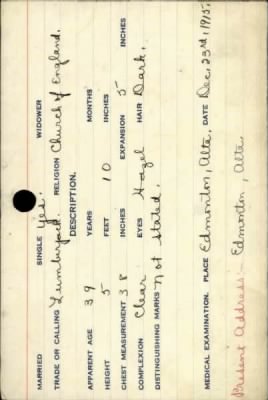 MARRIED SINGLE Yes. WIDOWER
TRADE OR CALLING Lumberjack. RELIGION Church of England.
DESCRIPTION.
APPARENT AGE 39 YEARS MONTHS
HEIGHT 5 FEET 10 INCHES
CHEST MEASUREMENT 38 INCHES EXPANSION 5 INCHES
COMPLEXION Clear EYES Hazel HAIR Dark.
DISTINGUISHING MARKS Not Stated.
MEDICAL EXAMINATION. PLACE Edmonton, Alta. DATE Dec. 23rd, 1915.
Present Address:- Edmonton, Alta